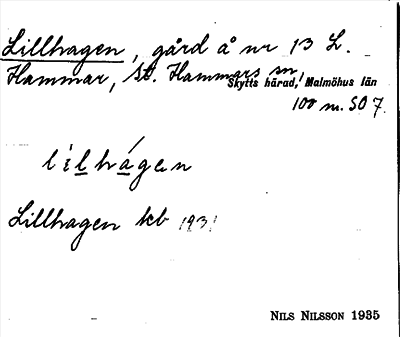 Lillhagen, gård å nr 13 L.
Hammar, St. Hammars sn,
Skytts härad, Malmöhus län
100 m. SO 7.
lìlhágen
Lillhagen kb 1931
NILS NILSSON 1935